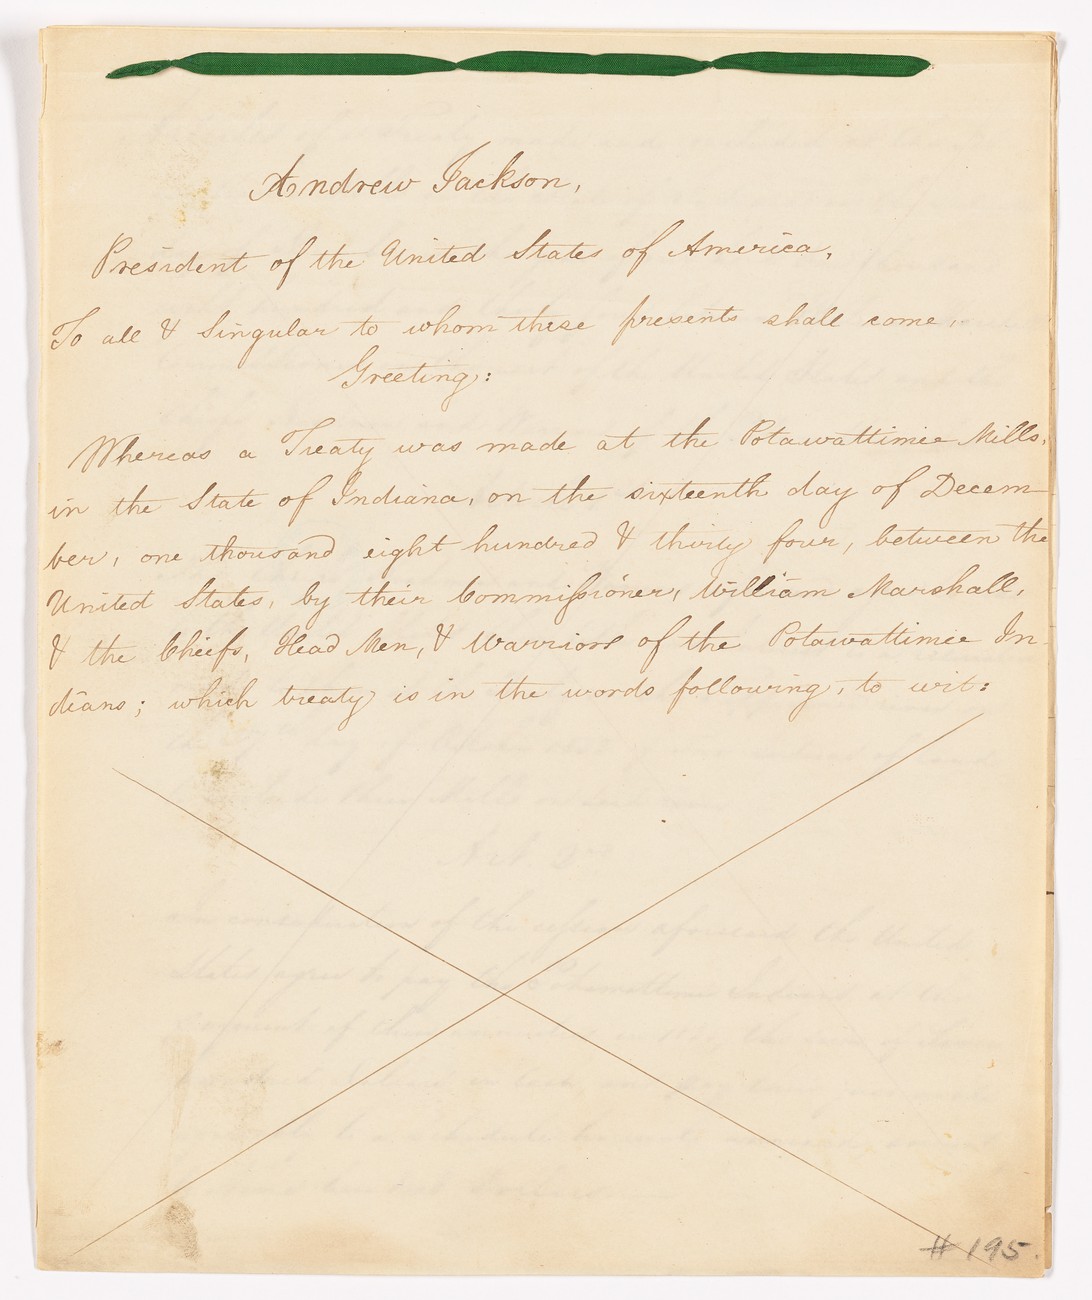 Andrew Jackson,
President of the United States of America,
To all & Singular to whom these presents shall come,
Greeting:
Whereas a Treaty was made at the Potawattimie Mills,
in the State of Indiana, on the sixteenth day of Decem-
ber, one thousand eight hundred & thirty four, between the
United States, by their Commissioner, William Marshall,
& the Chiefs, Head Men, & Warriors of the Potawattimie In-
dians; which treaty is in the words following, to wit:
# 195.